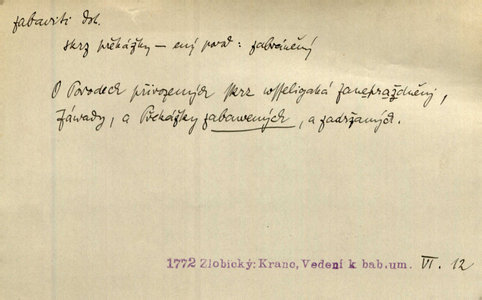 zabaviti dok.
skrz překážky — ený porod: zabráněný
O Porodech přirozených skrz wsseligaká zaneprazdněnj,
Záwady, a Překážky zabawených, a zadržaných.
1772 Zlobický: Kranc, Vedení k bab. um. VI. 12